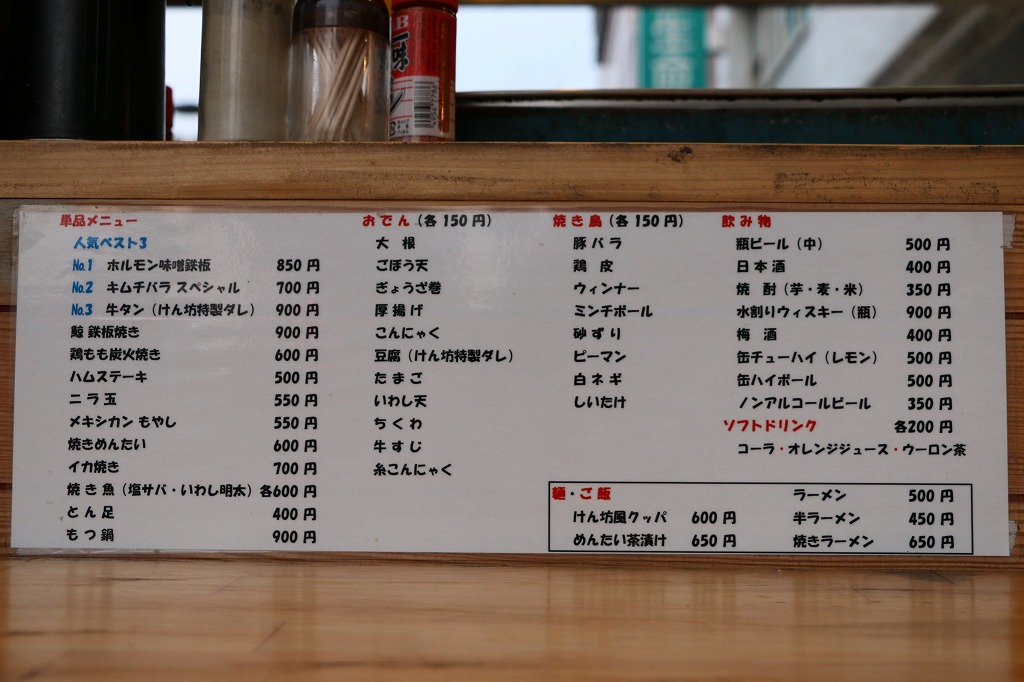 生命
B
一味
単品メニュー
人気ベスト3
No.1 ホルモン味噌鉄板 850 円
No.2 キムチバラ スペシャル 700 円
No.3 牛タン（けん坊特製ダレ） 900 円
鯨 鉄板焼き 900 円
鶏もも炭火焼き 600 円
ハムステーキ 500 円
ニ ラ 玉 550 円
メキシカン もやし 550 円
焼きめんたい 600 円
イカ焼き 700 円
焼 き 魚（塩サバ・いわし明太）各600 円
と ん 足 400 円
も つ 鍋 900 円
お で ん（各 150 円）
大 根
ごぼう天
ぎょうざ巻
厚 揚 げ
こんにゃく
豆腐（けん坊特製ダレ）
た ま ご
いわし天
ち く わ
牛 す じ
糸こんにゃく
焼 き 鳥（各 150 円）
豚 バ ラ
鶏 皮
ウィンナー
ミンチボール
砂 ず り
ピーマン
白 ネ ギ
しいたけ
飲 み 物
瓶ビール（中） 500 円
日 本 酒 400 円
焼 酎（芋・麦・米） 350 円
水割りウィスキー（瓶） 900 円
梅 酒 400 円
缶チューハイ（レモン） 500 円
缶ハイボール 500 円
ノンアルコールビール 350 円
ソフトドリンク 各200 円
コーラ・オレンジジュース・ウーロン茶
麺・ご 飯
けん坊風クッパ 600 円
めんたい茶漬け 650 円
ラーメン 500 円
半ラーメン 450 円
焼きラーメン 650 円